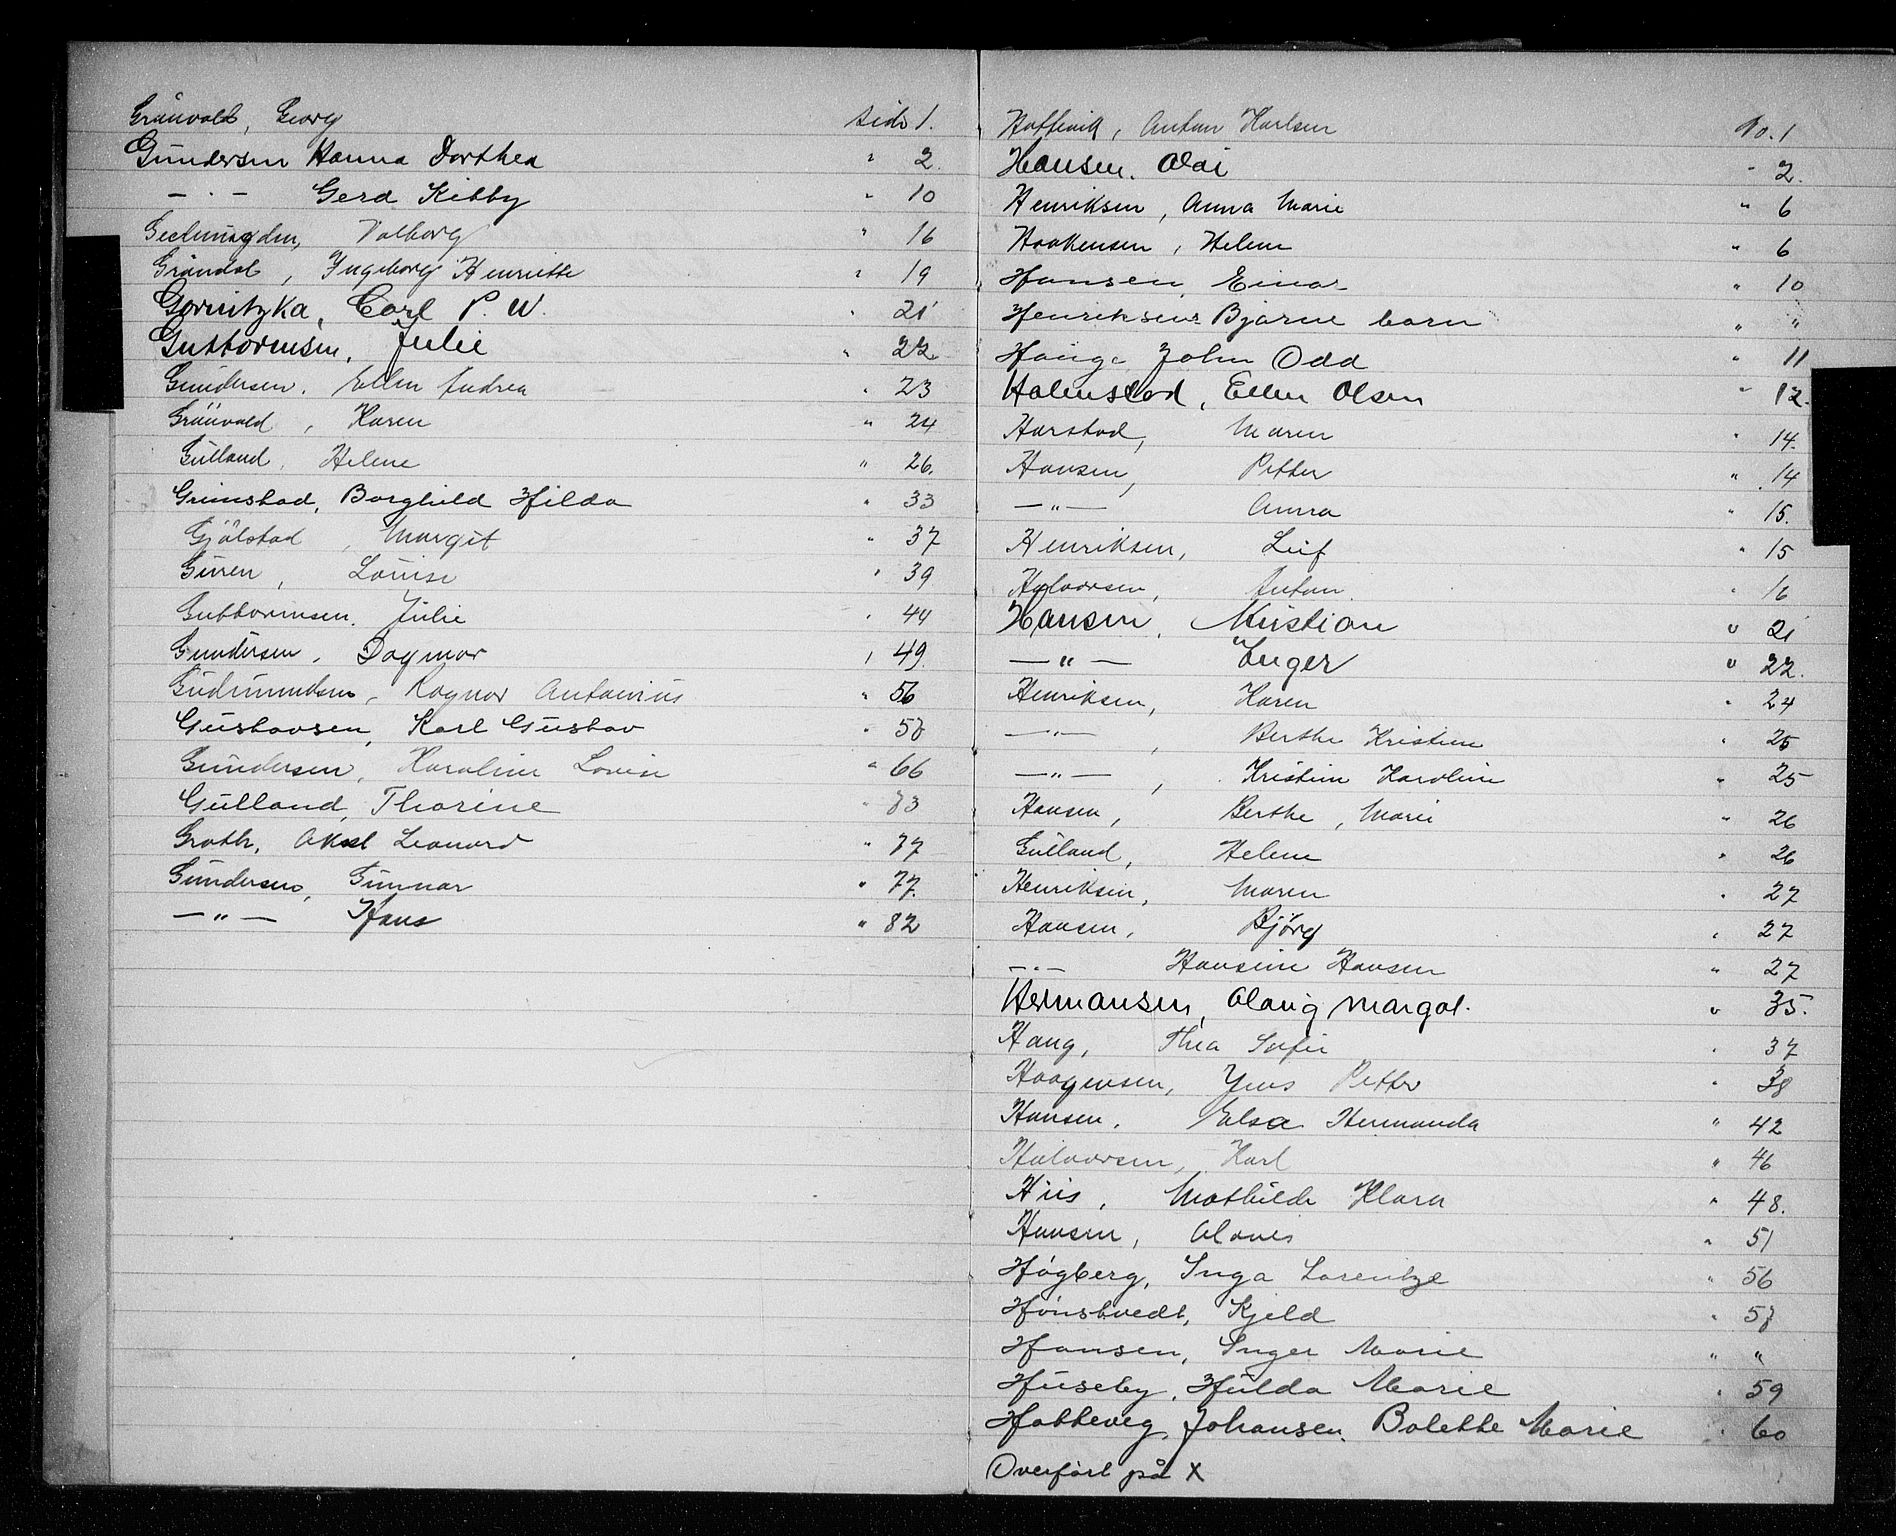 Grünvald, Georg side 1.
Gundersen Hanna Dorthea " 2.
— " — Gerd Kibby " 10
Valborg " 16
Gröndal, Ingeborg Henriette " 19
Gornitzka, Carl P. W. " 21
Guttormsen, Julie " 22.
Gundersen, Ellen Andrea " 23
Grünvald, Karen " 24
Gulland, Helene " 26.
Grimstad, Borghild Hilda " 33
Gjölstad, Margit " 37
Guren, Louise " 39
Guttormsen, Julie " 44
Gundersen, Dagmar " 49
Gudmundsen, Ragnar Antonius " 56
Gustavsen, Karl Gustav " 58
Gundersen, Karoline Louise " 66
Gulland, Thorine " 73
Groth, Aksel Leonard " 77
Gundersen, Gunnar " 77.
— " — Hans " 82
Hattevik, Anton Karlsen No. 1
Hansen, Olai " 2.
Henriksen, Anna Marie " 6
Haakensen, Helene " 6
Hansen, Einar " 10
Henriksens Bjarne barn " "
Hauge John Odd " 11
Holmstad, Ellen Olsen " 12.
Harstad, Maren " 14.
Hansen, Petter " 14
— " — Anna " 15.
Henriksen, Leif " 15
Halvorsen, Anton. " 16
Hansen, Kristian " 21
— " — Inger " 22.
Henriksen, Karen " 24
— " —, Berthe Kristine " 25
— " —, Kristine Karoline " 25
Hansen, Berthe, Marie " 26
Gulland, Helene " 26
Henriksen, Maren " 27
Hansen, Bjørg " 27
— " — Hansine Hansen " 27
Hermansen, Olaug Margot. " 35.
Haug, Thea Sofie " 37
Haagensen, Jens Petter " 38
Hansen, Elsa Hermanda " 42
Halvorsen, Karl " 46
Hiis, Mathilde Klara " 48.
Hansen, " 51
Høgberg, Inga Lorentze " 56
Hønstvedt, Kjeld " 58
Hansen, Inger Marie " "
Huseby, Hulda Marie " 59
Hatteveg Johansen, Bolette Marie " 60
Overført på X